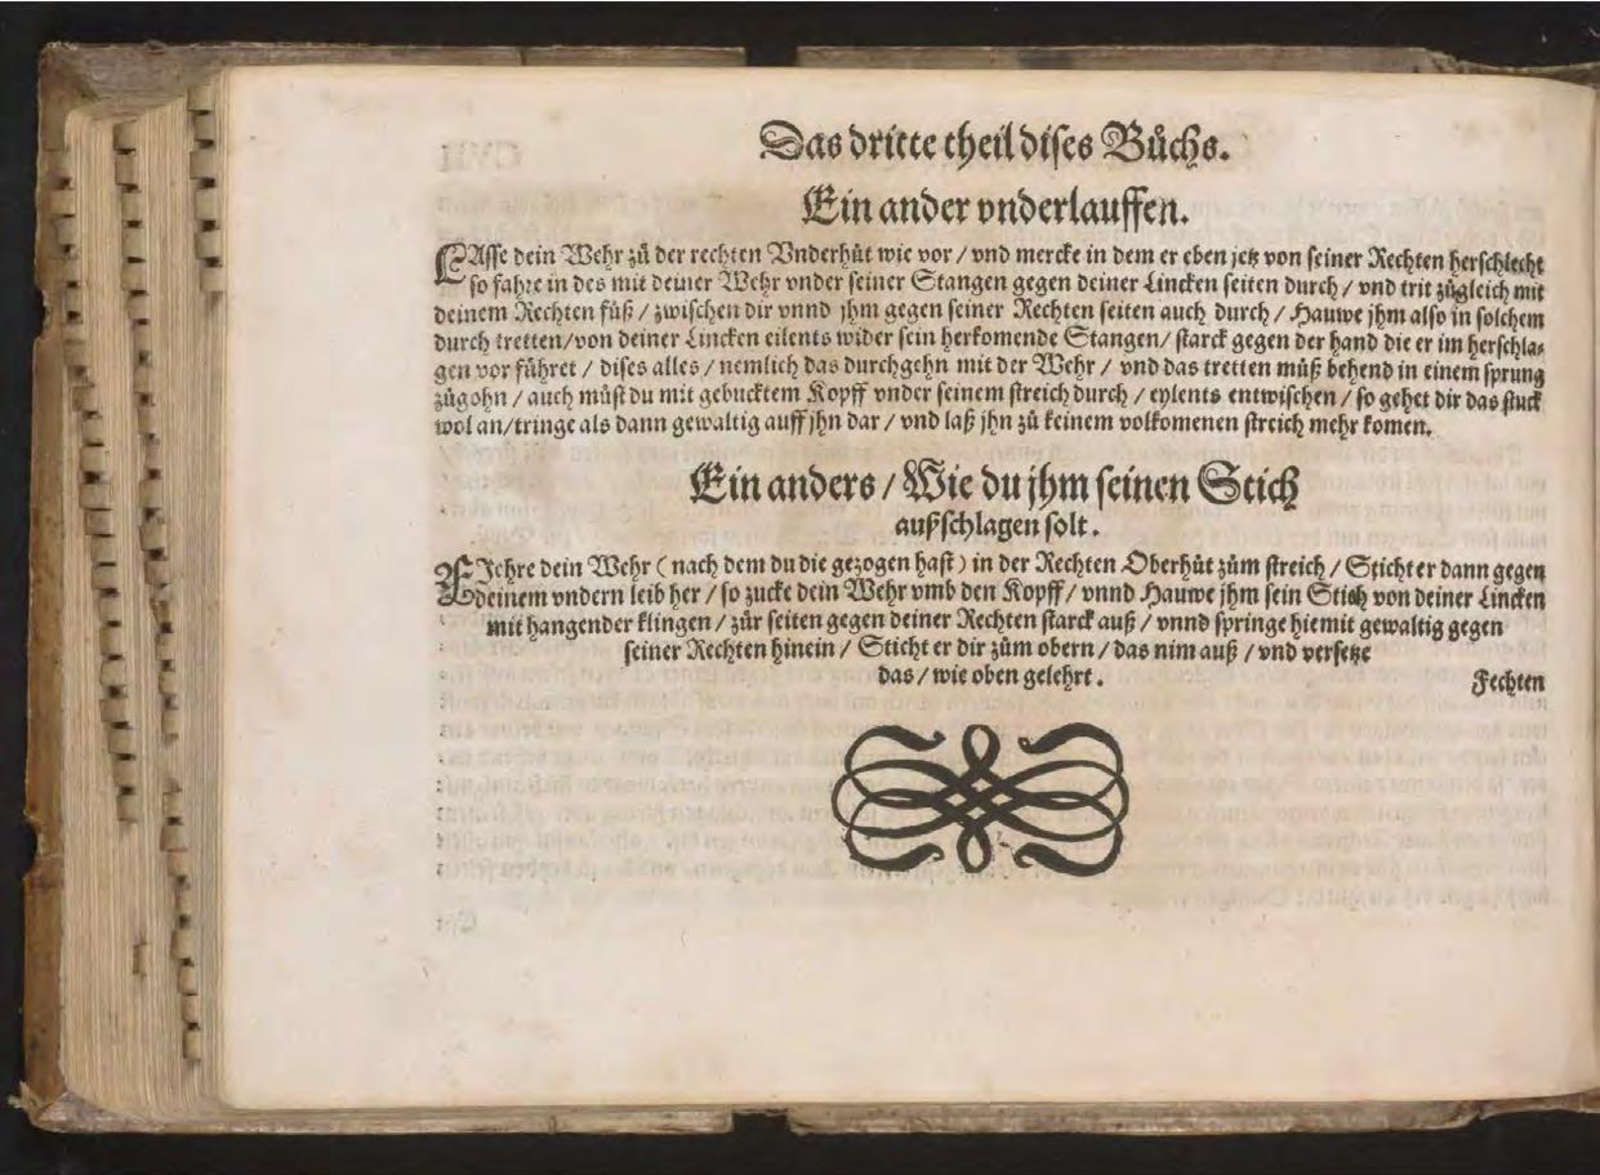 Das dritte theil dises Bůchs.
Ein ander vnderlauffen.
LAsse dein Wehr zů der rechten Vnderhůt wie vor / vnd mercke in dem er eben jetz von seiner Rechten herschlecht
so fahre in des mit deiner Wehr vnder seiner Stangen gegen deiner Lincken seiten durch / vnd trit zůgleich mit
deinem Rechten fůß / zwischen dir vnnd jhm gegen seiner Rechten seiten auch durch / Hauwe jhm also in solchem
durch tretten/von deiner Lincken eilents wider sein herkomende Stangen/ starck gegen der hand die er im herschla⸗
gen vor führet / dises alles / nemlich das durchgehn mit der Wehr / vnd das tretten můß behend in einem sprung
zůgohn / auch můst du mit gebucktem Kopff vnder seinem streich durch / eylents entwischen / so gehet dir das stuck
wol an/tringe als dann gewaltig auff jhn dar / vnd laß jhn zů keinem volkomenen streich mehr komen.
Ein anders / Wie du jhm seinen Stich
außschlagen solt.
FJehre dein Wehr ( nach dem du die gezogen hast ) in der Rechten Oberhůt zům streich / Sticht er dann gegen
deinem vndern leib her / so zucke dein Wehr vmb den Kopff / vnnd Hauwe jhm sein Stich von deiner Lincken
mit hangender klingen / zůr seiten gegen deiner Rechten starck auß / vnnd springe hiemit gewaltig gegen
seiner Rechten hinein / Sticht er dir zům obern / das nim auß / vnd versetze
das / wie oben gelehrt.
Fechten